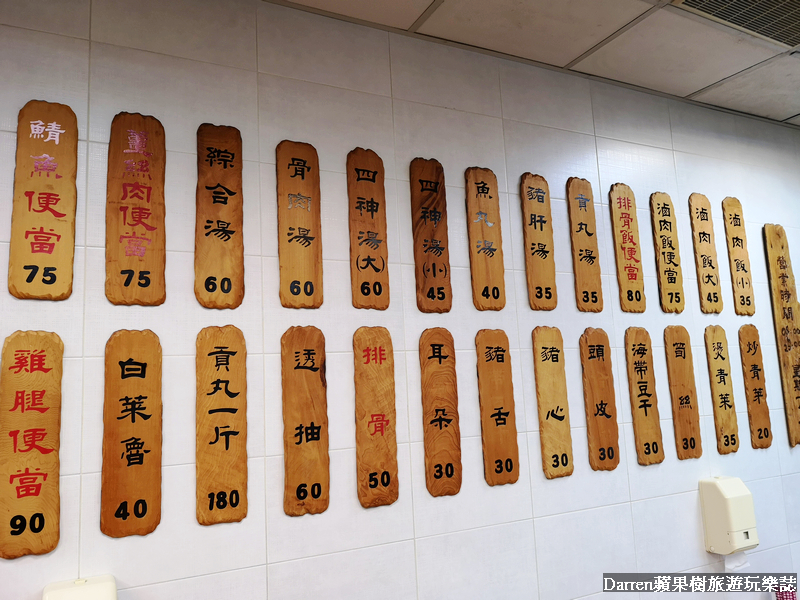 滷肉飯(小) 35
滷肉飯(大) 45
滷肉飯便當 75
排骨飯便當 80
貢丸湯 35
豬肝湯 35
魚丸湯 40
四神湯(小) 45
四神湯(大) 60
骨肉湯 60
綜合湯 60
絲肉便當 75
鯖魚便當 75
炒青芽 20
燙青菜 35
筍絲 30
海帶豆干 30
頭皮 30
豬心 30
豬舌 30
耳朵 30
排骨 50
透抽 60
貢丸一斤 180
白菜魯 40
雞腿便當 90
營業時間
Darren蘋果樹旅遊玩樂誌